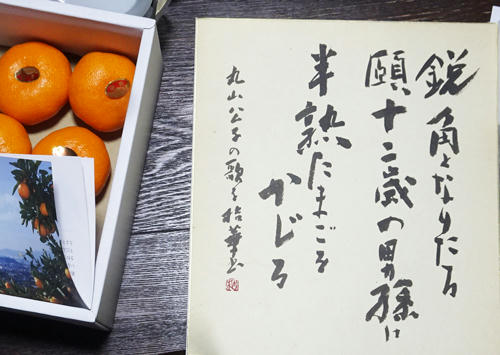 鋭角となりたる
頤十二歳の男孫は
半熟たまごを
かじる
丸山公子の歌を